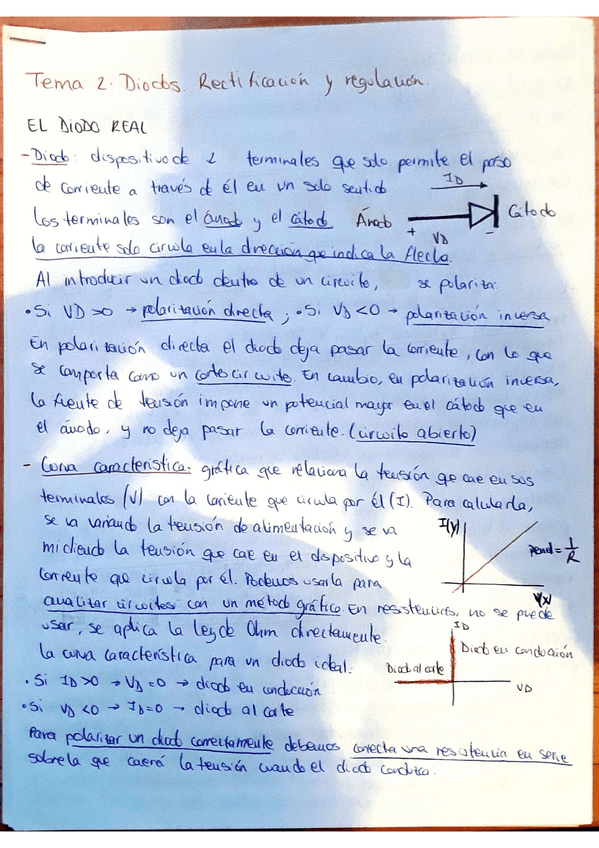 Tema 2: Diodos. Rectificación y regulación.
EL DIODO REAL
- Diodo: dispositivo de 2 terminales que solo permite el paso
de corriente a través de él en un solo sentido
ID
Los terminales son el ánodo y el cátodo
Ánodo
Cátodo
+ VD -
la corriente solo circula en la dirección que indica la flecha.
Al introducir un diodo dentro de un circuito, se polariza:
• Si VD>0 → polarización directa ; • Si VD<0 → polarización inversa
En polarización directa el diodo deja pasar la corriente, con lo que
se comporta como un cortocircuito. En cambio, en polarización inversa,
la fuente de tensión impone un potencial mayor en el cátodo que en
el ánodo, y no deja pasar la corriente. (circuito abierto)
- Curva característica: gráfica que relaciona la tensión que cae en sus
terminales (V) con la corriente que circula por él (I). Para calcularla,
se va variando la tensión de alimentación y se va
midiendo la tensión que cae en el dispositivo y la
corriente que circula por él. Podemos usarla para
analizar circuitos con un método gráfico. En resistencias, no se puede
usar, se aplica la ley de Ohm directamente.
I(y)
pend = 1/R
V(x)
la curva característica para un diodo ideal:
• Si ID>0 → VD=0 → diodo en conducción
• Si VD<0 → ID=0 → diodo al corte
ID
Diodo en conducción
Diodo al corte
VD
Para polarizar un diodo correctamente debemos conecta una resistencia en serie
sobre la que caerá la tensión cuando el diodo conduzca.